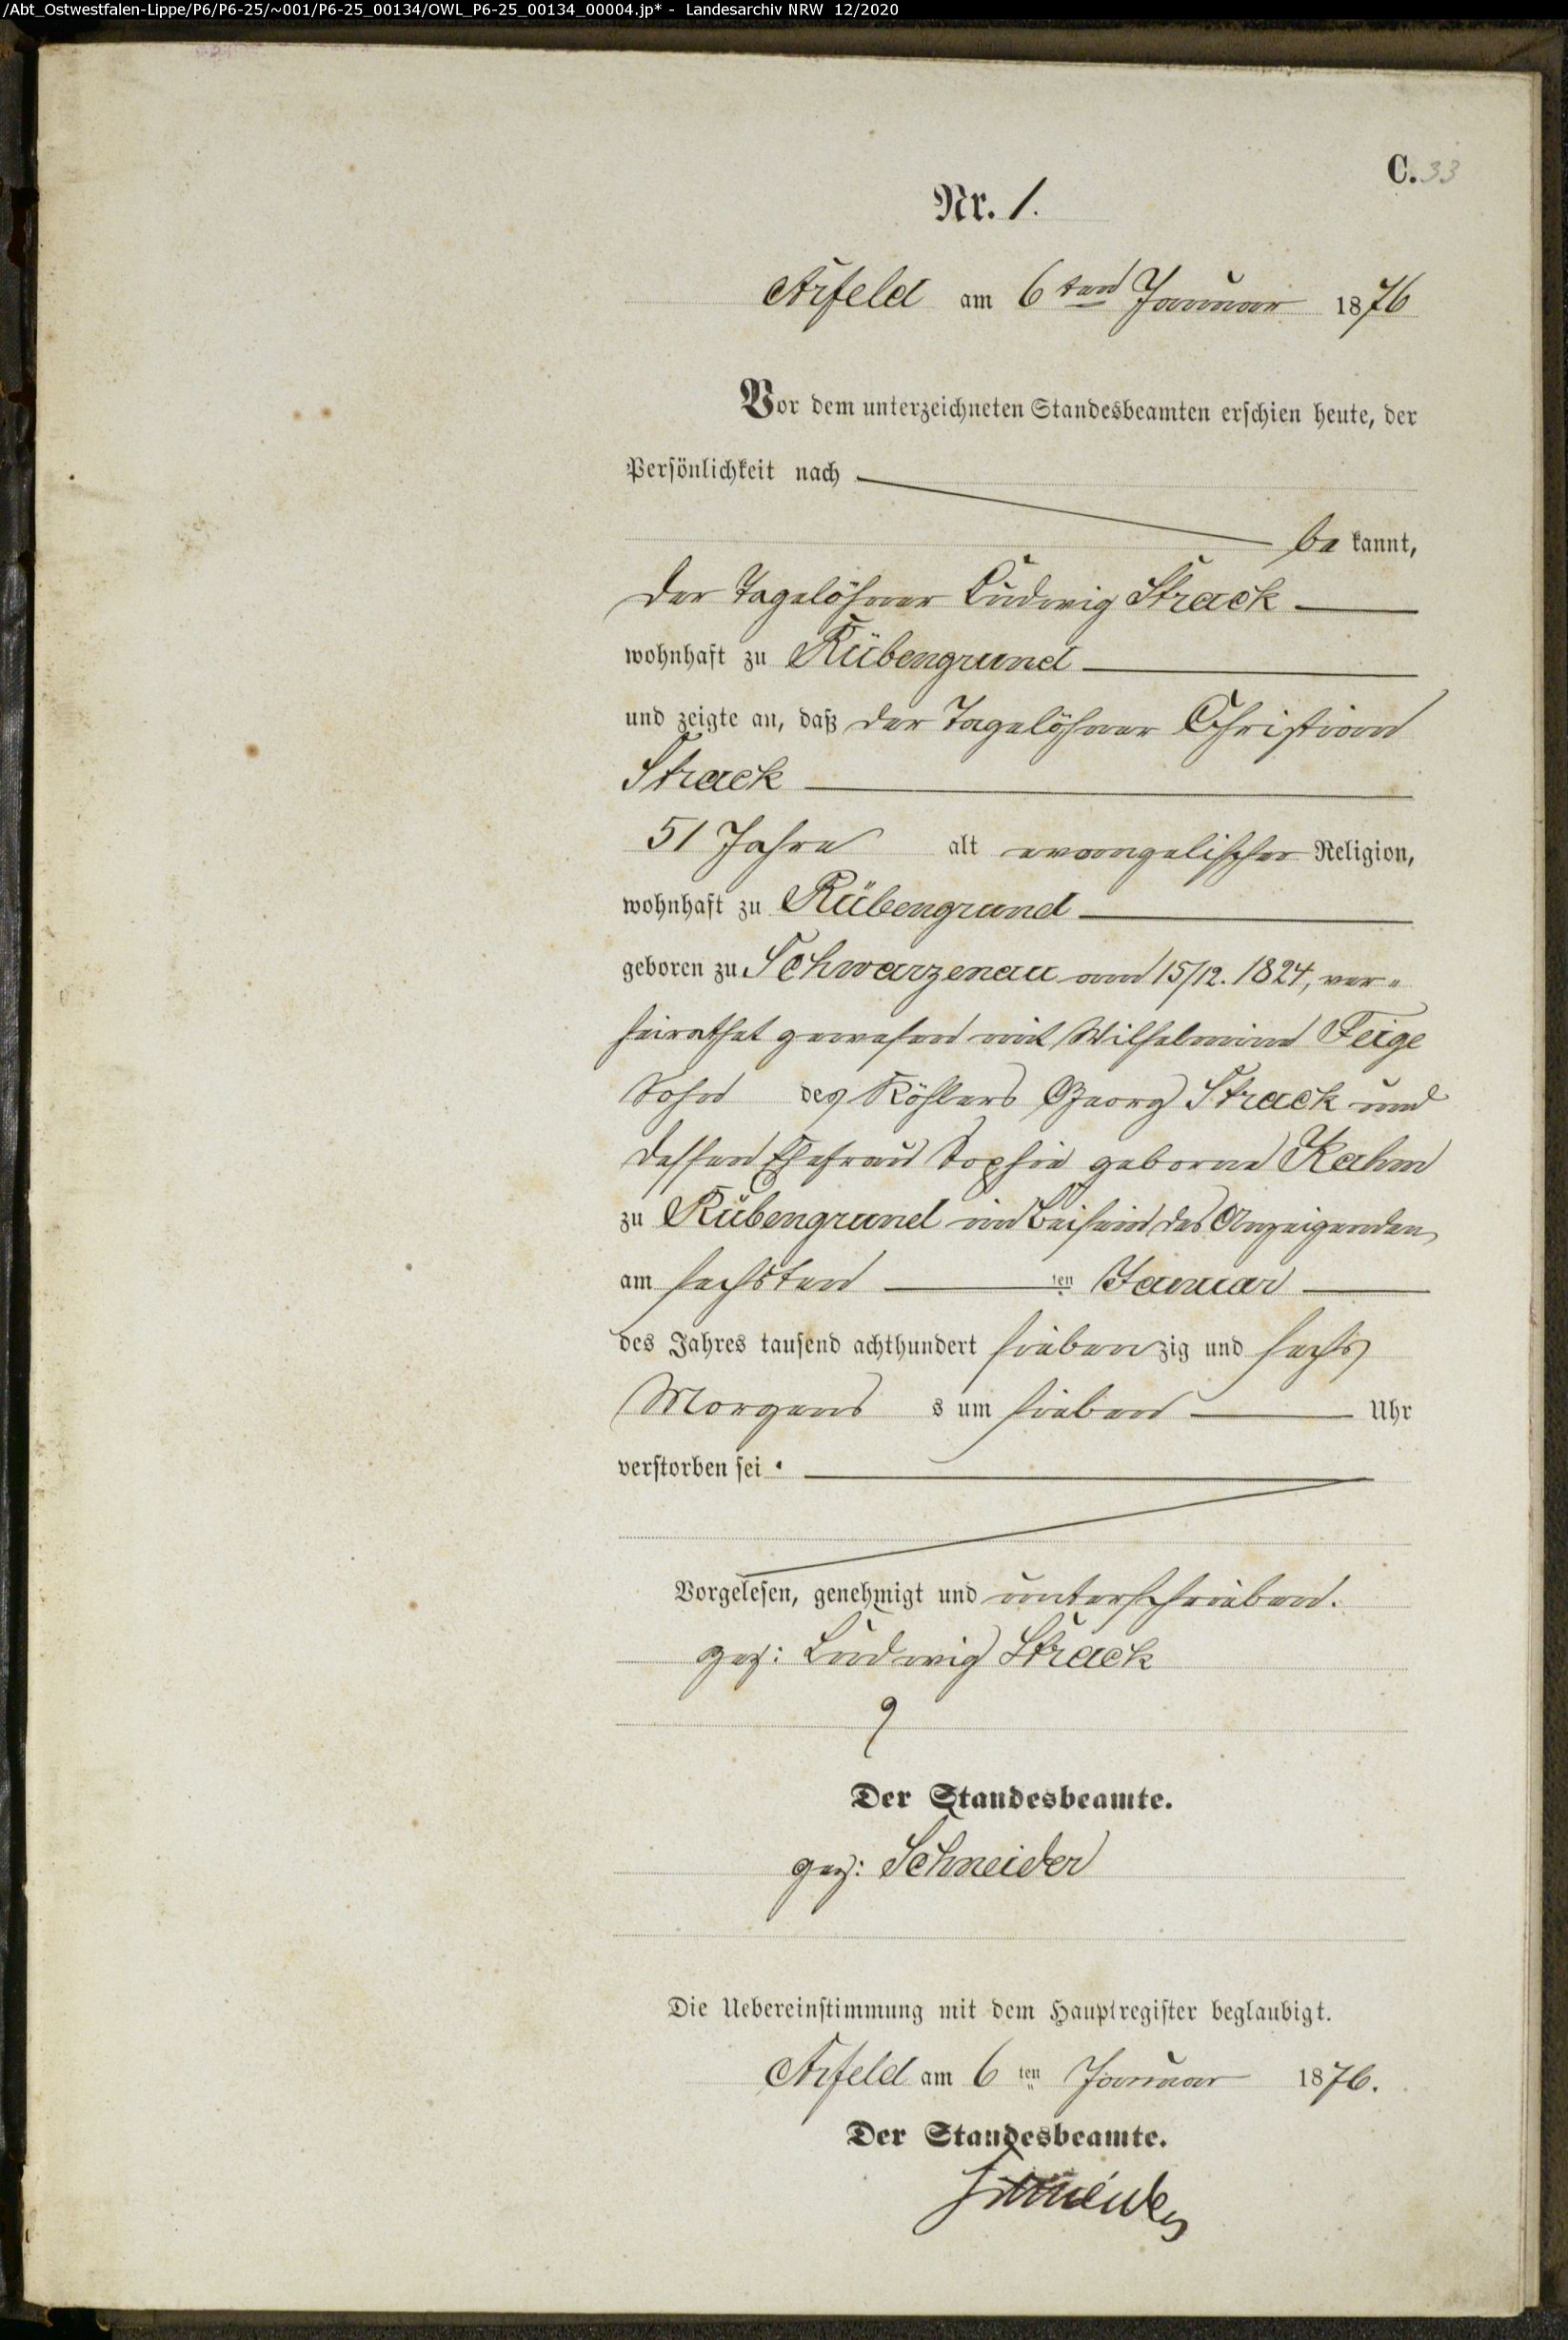 /Abt_Ostwestfalen-Lippe/P6/P6-25/~001/P6-25_00134/OWL_P6-25_00134_00004.jp* - Landesarchiv NRW 12/2020
C. 33
Nr. 1.
Arfeld am 6ten Januar 1876
Vor dem unterzeichneten Standesbeamten erschien heute, der
Persönlichkeit nach
be kannt,
der Tagelöhner Ludwig Strack
wohnhaft zu Rübengrund
und zeigte an, daß der Tagelöhner Christian
Strack
51 Jahre alt evangelischer Religion,
wohnhaft zu Rübengrund
geboren zu Schwarzenau am 15/12. 1824, ver-
heirathet gewesen mit Wilhelmine Feige
Sohn des Köhlers Georg Strack und
dessen Ehefrau Sophie geborne Kahm
zu Rübengrund im Beisein des Anzeigenden
am sechsten ten Januar
des Jahres tausend achthundert siebenzig und sechs
Morgens s um sieben Uhr
verstorben sei.
Vorgelesen, genehmigt und unterschrieben.
gez: Ludwig Strack
Der Standesbeamte.
gez: Schneider
Die Uebereinstimmung mit dem Hauptregister beglaubigt.
Arfeld am 6ten Januar 1876.
Der Standesbeamte.
Schneider